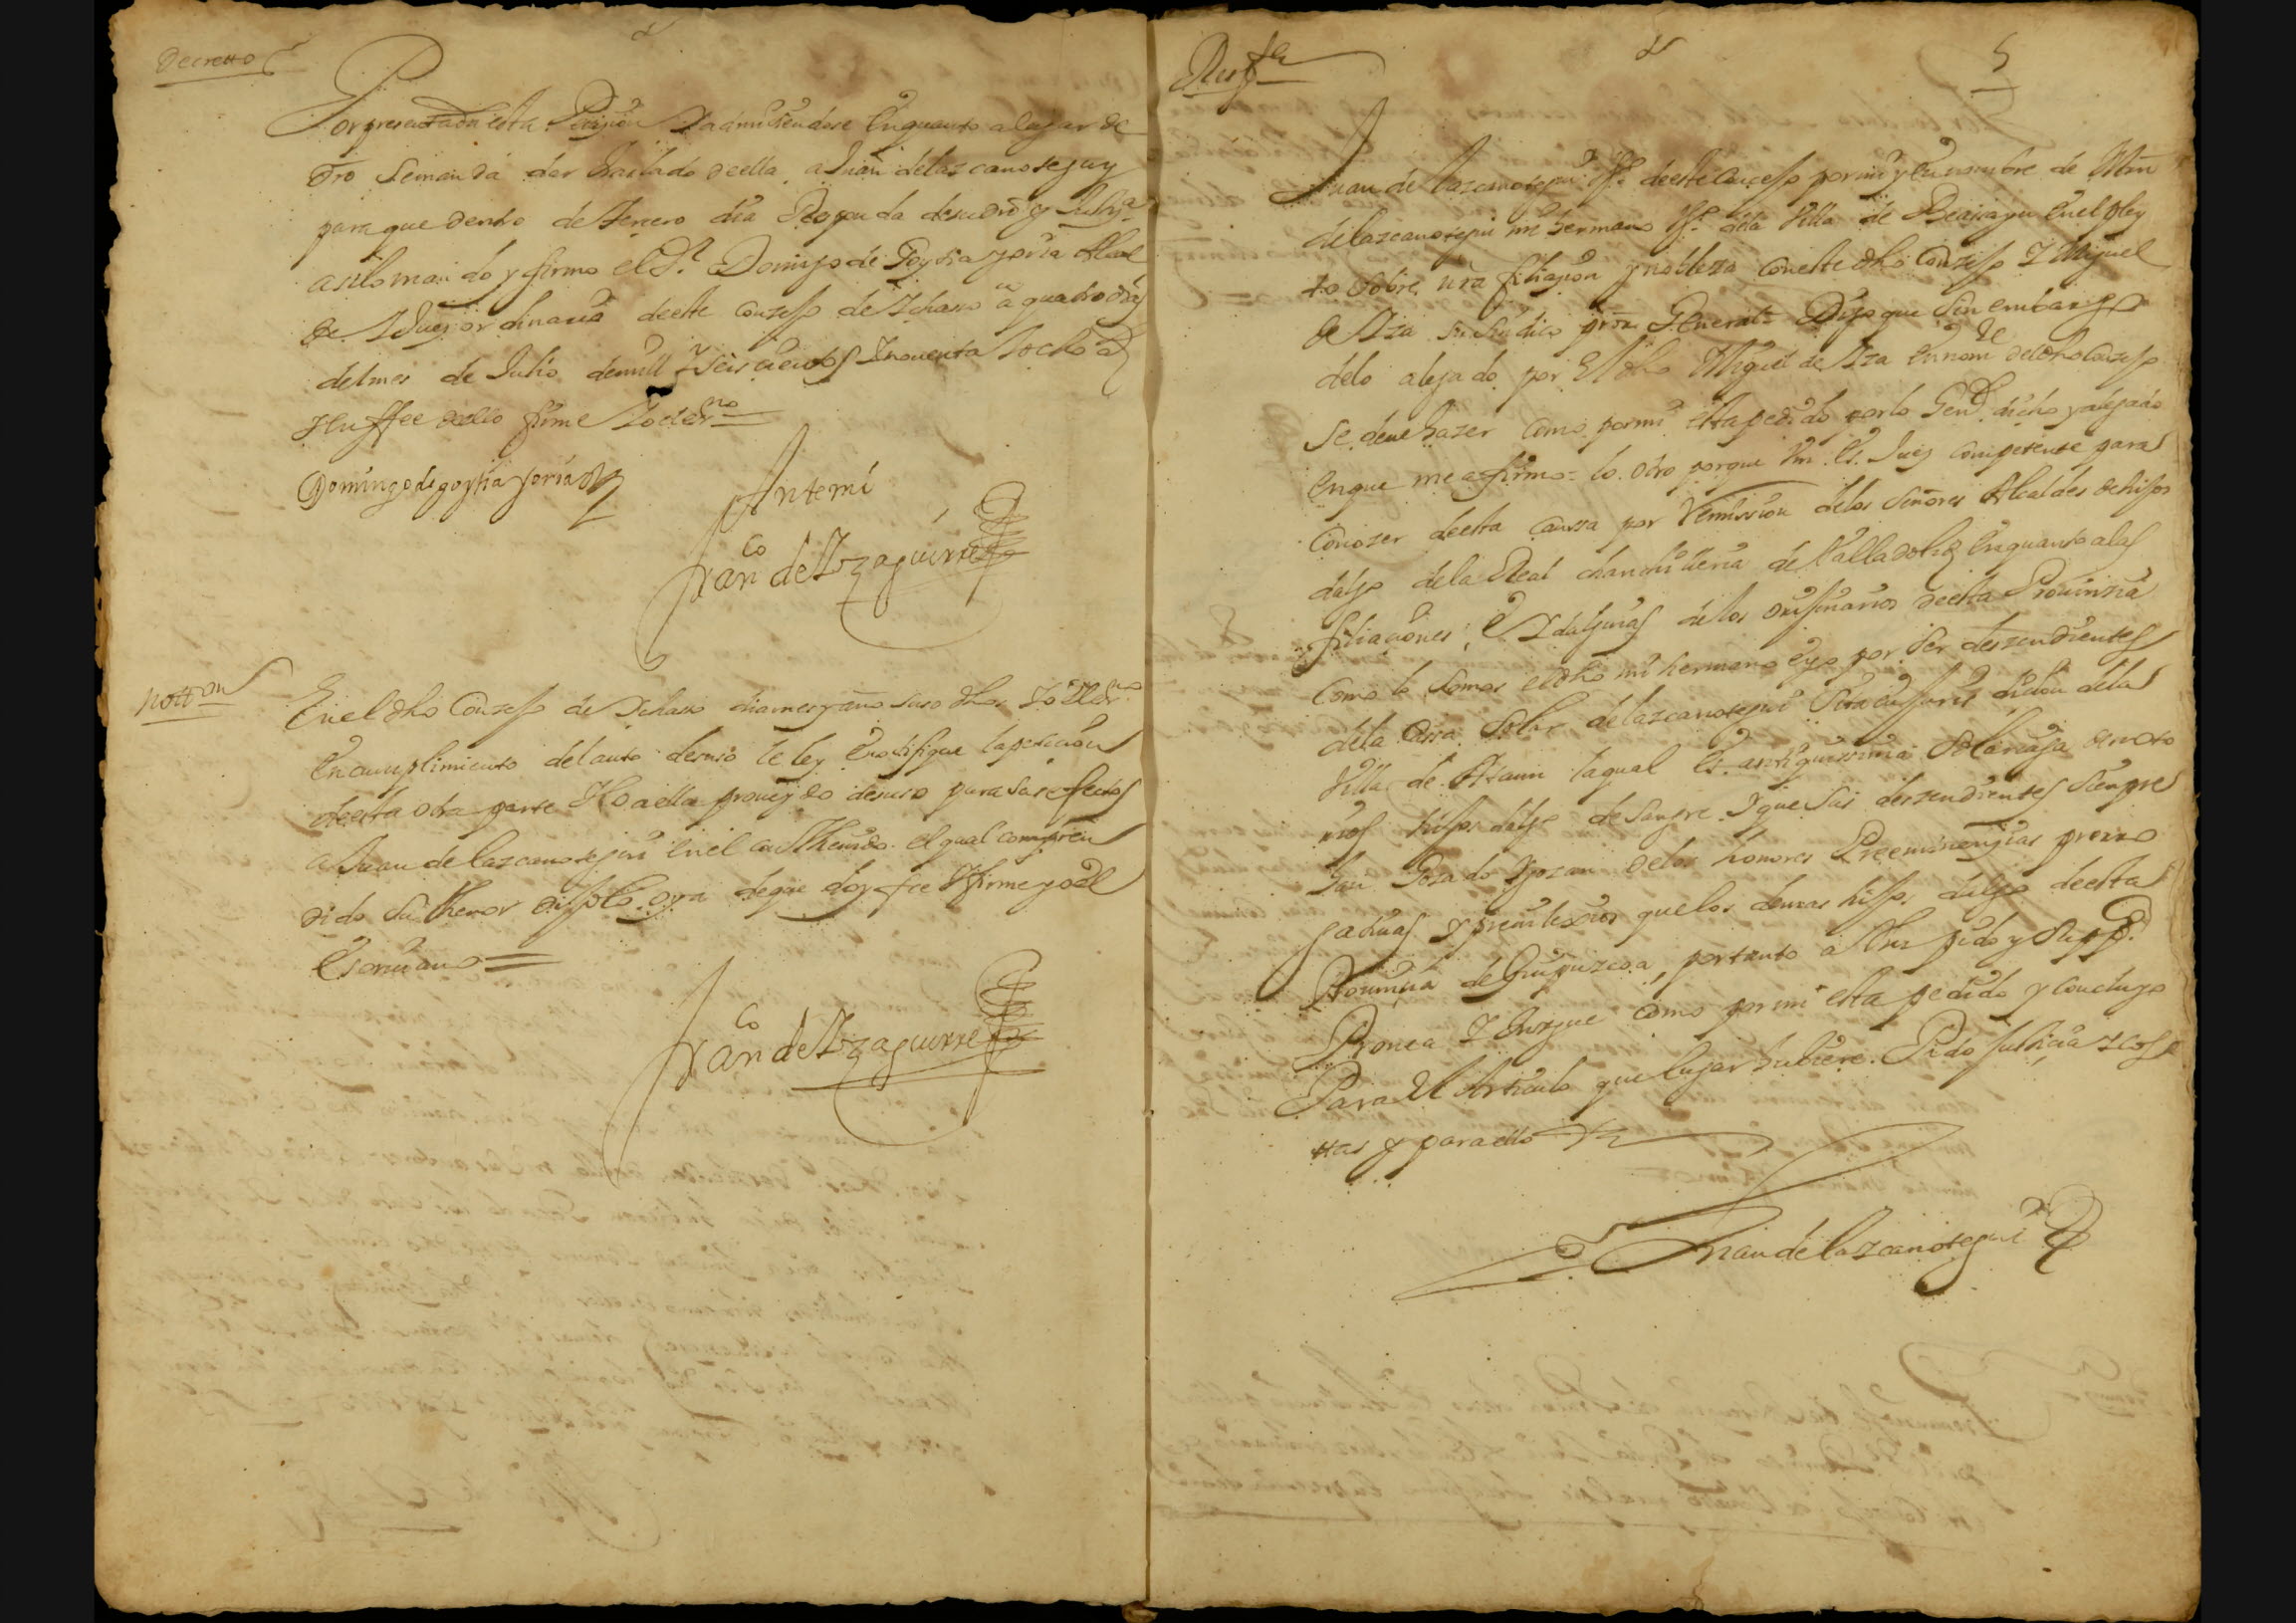 Decretto
Por presentada esta Petiçion Y admitiendose Enquanto a lugar de
dro Semanda dar traslado de ella a Juan de lazcanotegui
para que dentro de terzero dia Responda de su dro y Justiª
asilo mando y firmo el Sr Domingo de Goytia yoria Alcal
de Y Juez ordinario de este Conzejo de Ichasso a quatro dias
del mes de Julio de mill Y seis cientos Y nouenta Y ocho a
En ffee de ello firme Yo el esno
Domingo de goytia yoria
Ante mi
Franco de Yzaguirre
notton
En el dho Conzejo de Ichasso dia mes y año suso dhos Yo el esno
En cumplimiento del auto de suso le ley E notifique la peticion
de esta otra parte Y lo a ella proueydo de suso para sus efectos
a Juan de lazcanotegui en el contthenido. el qual compreen
dido su thenor dijo lo oya de que doy fee Y firme yo el
Escriuano
Franco de Yzaguirre
5
Juan de lazcanotegui vº de este Conçejo por mi y En nombre de Mrn
de lazcanotegui mi hermano vº de la Villa de Beasayn En el pley
to sobre nra filiaçion y nobleza con este dho Conzejo Y Miguel
de Aza su sindico pror General Digo que sin embargo
de lo alegado por El dho Miguel de Aza En nome del dho Conzejo
se deue hazer como por mi esta pedido por lo Genl dicho y alegado
En que me afirmo = lo otro porque Vm Es Juez Competente para
Conozer de esta Caussa por Remission de los Señores Alcaldes de hijos
dalgo de la Real chanchilleria de Valladolid En quanto a las
filiaçiones, E Ydalguias de los originarios de esta Prouinzia
Como lo somos el dho mi hermano E yo por Ser deszendientes
de la Cassa Solar de lazcanotegui Sita En Juris dicion de la
Villa de Ataun la qual Es antiquissima Solariega de noto
rios hijos dalgo de Sangre Y que sus deszendientes Siempre
han Gozado Y gozan de los honores Preeminençias prerro
gatiuas y preuilexios que los demas hijos dalgo de esta
Prouinçia de Guipuzcoa, portanto a Vm pido y Suppco
Prouea Y Juzgue como por mi esta pedido y Concluyo
Para El Articulo que lugar hubiere. Pido Justicia Y Cos
ttas y para ello
Juan de lazcanotegui